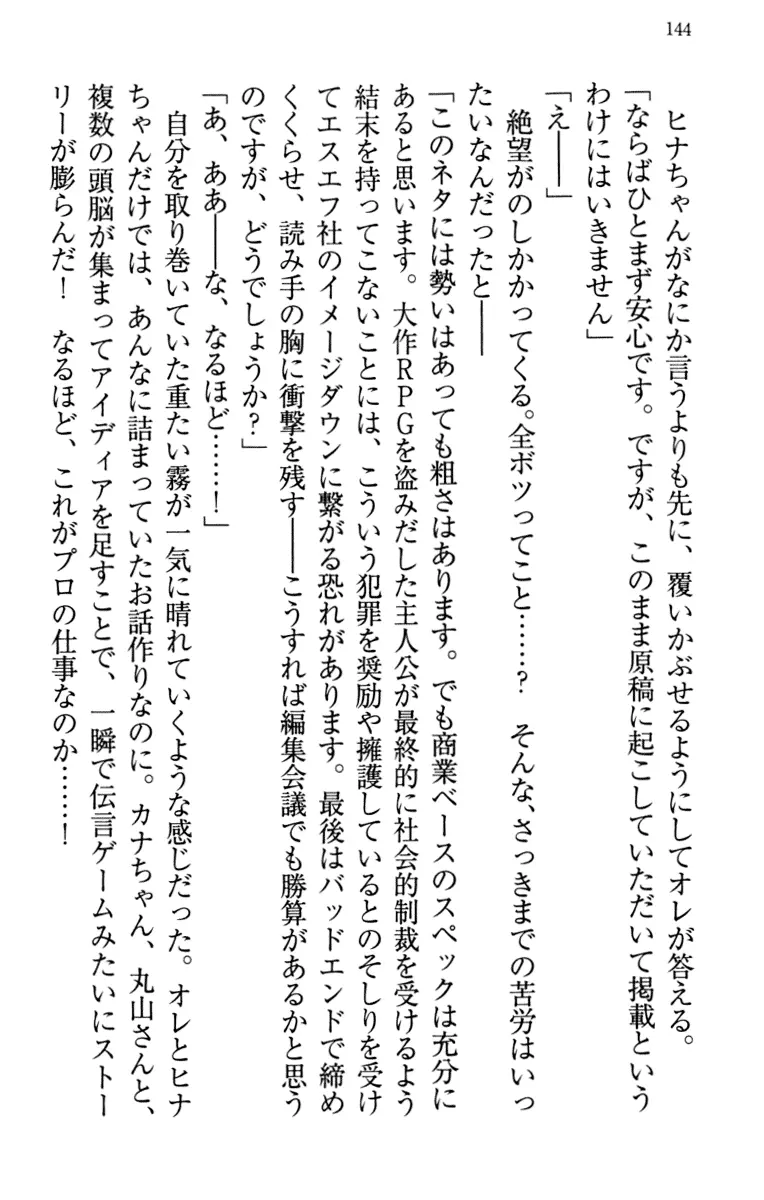 144
ヒナちゃんがなにか言うよりも先に、覆いかぶせるようにしてオレが答える。
「ならばひとまず安心です。ですが、このまま原稿に起こしていただいて掲載という
わけにはいきません」
「え――」
絶望がのしかかってくる。全ボツってこと……？　そんな、さっきまでの苦労はいっ
たいなんだったと――
「このネタには勢いはあっても粗さはあります。でも商業ベースのスペックは充分に
あると思います。大作RPGを盗みだした主人公が最終的に社会的制裁を受けるよう
結末を持ってこないことには、こういう犯罪を奨励や擁護しているとのそしりを受け
てエスエフ社のイメージダウンに繋がる恐れがあります。最後はバッドエンドで締め
くくらせ、読み手の胸に衝撃を残す――こうすれば編集会議でも勝算があるかと思う
のですが、どうでしょうか？」
「あ、ああ――な、なるほど……！」
自分を取り巻いていた重たい霧が一気に晴れていくような感じだった。オレとヒナ
ちゃんだけでは、あんなに詰まっていたお話作りなのに。カナちゃん、丸山さんと、
複数の頭脳が集まってアイディアを足すことで、一瞬で伝言ゲームみたいにストー
リーが膨らんだ！　なるほど、これがプロの仕事なのか……！